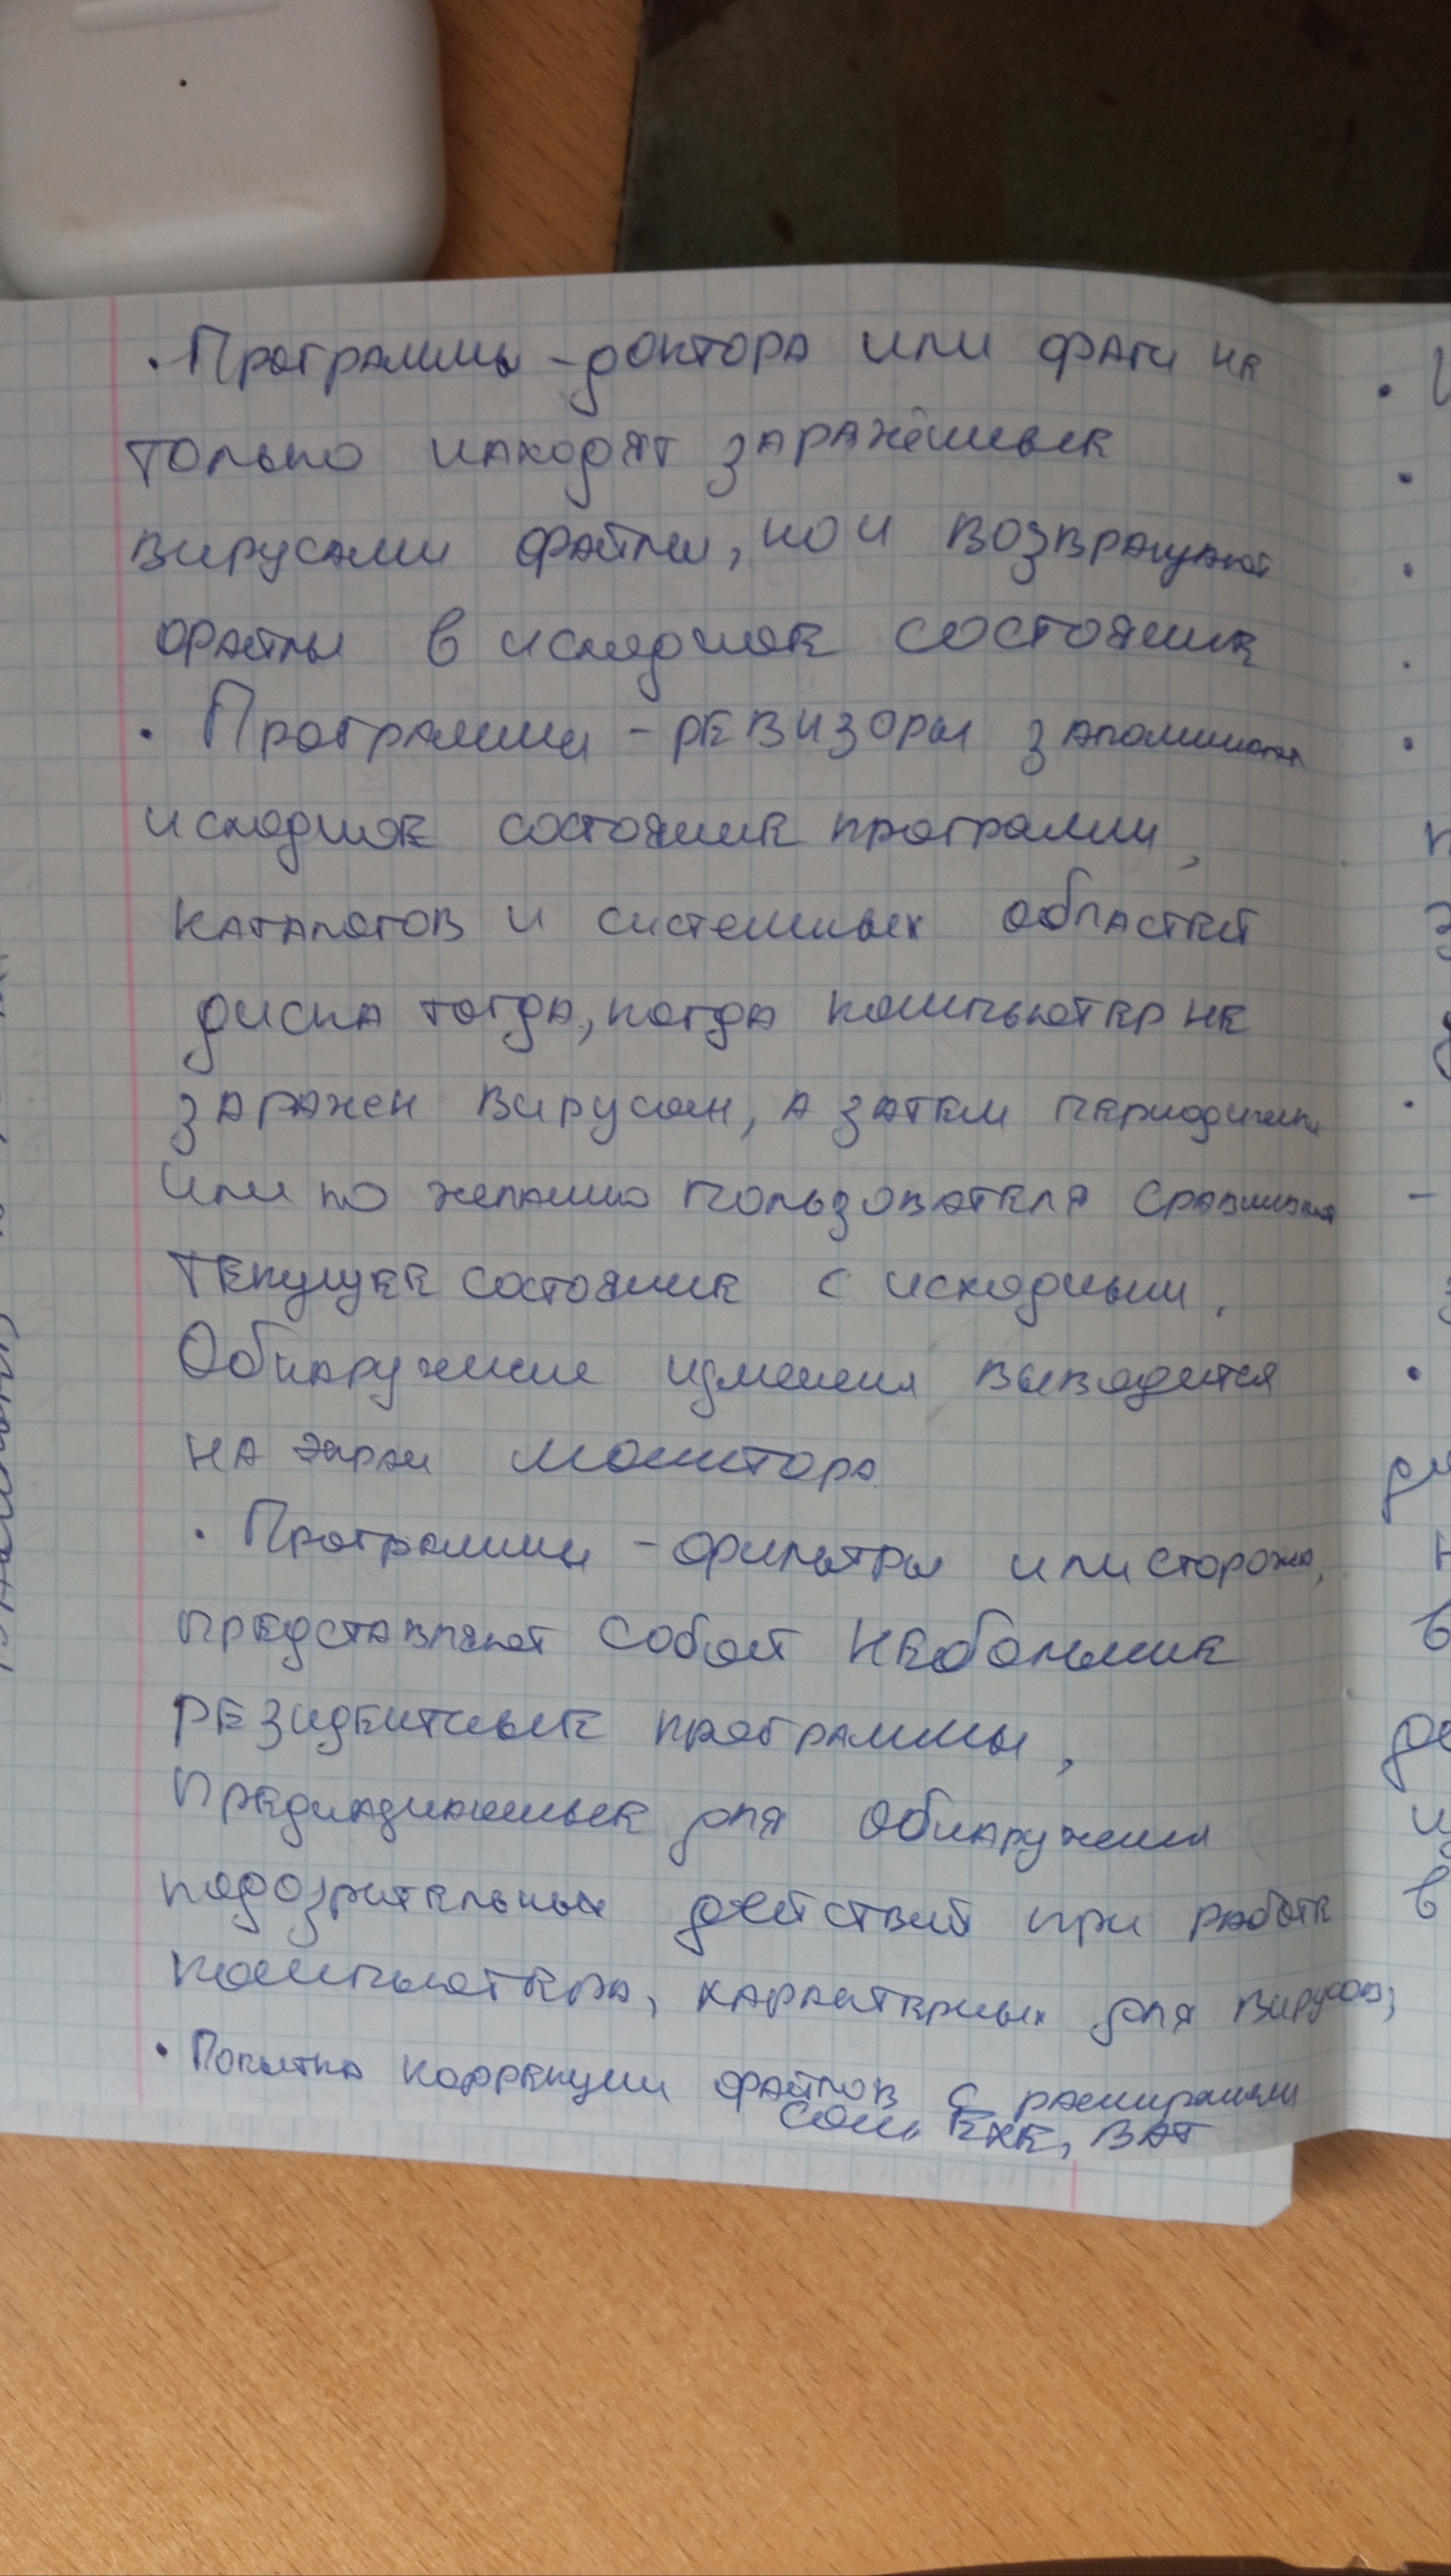 • Программы - доктора или фаги не
только находят заражённые
вирусами файлы, но и возвращают
файлы в исходное состояние
• Программы - ревизоры запоминают
исходное состояние программ,
каталогов и системных областей
диска тогда, когда компьютер не
заражен вирусом, а затем периодически
или по желанию пользователя сравнивают
текущее состояние с исходным.
Обнаружение изменения выводится
на экран монитора
• Программы - фильтры или сторожа,
представляют собой небольшие
резидентные программы,
предназначенные для обнаружения
подозрительных действий при работе
компьютера, характерных для вирусов;
• Попытка коррекции файлов с расширением
com, EXE, BAT